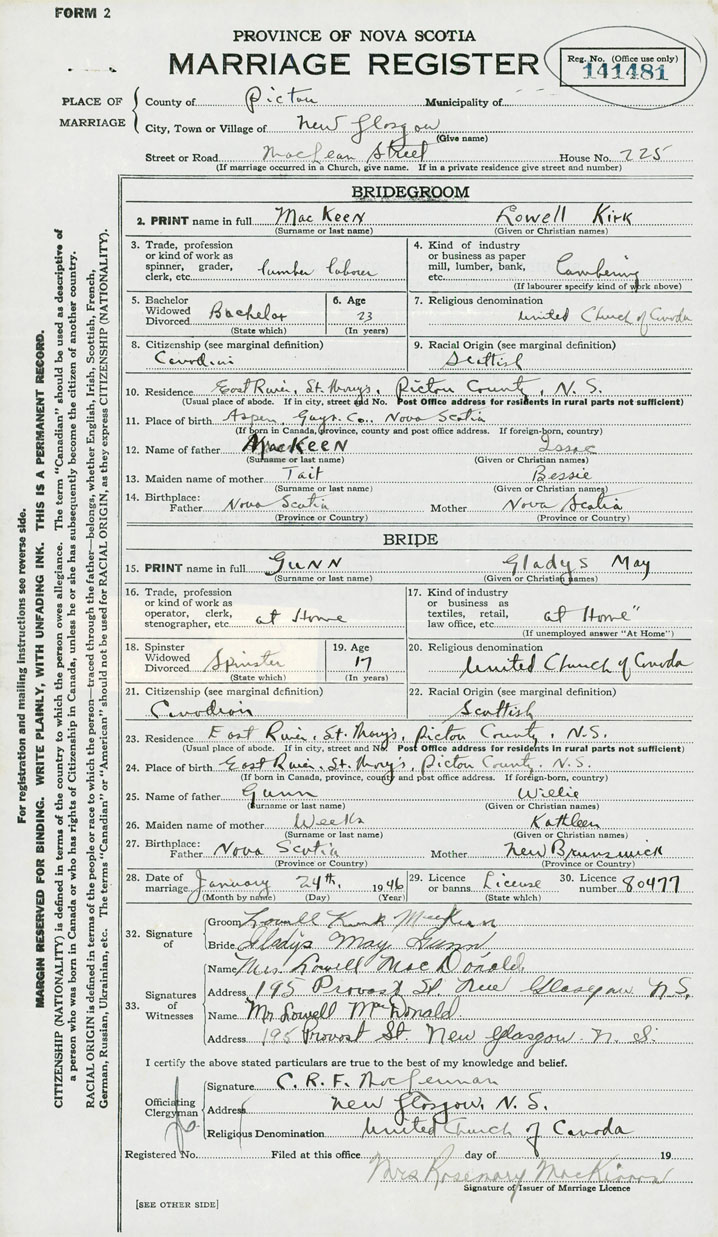 FORM 2
PROVINCE OF NOVA SCOTIA
MARRIAGE REGISTER
Reg. No. (Office use only)
141481
PLACE OF MARRIAGE
County of Pictou Municipality of
City, Town or Village of New Glasgow
(Give name)
Street or Road MacLean Street House No. 225
(If marriage occurred in a Church, give name. If in a private residence give street and number)
BRIDEGROOM
2. PRINT name in full MacKeen Lowell Kirk
(Surname or last name) (Given or Christian names)
3. Trade, profession or kind of work as spinner, grader, clerk, etc. lumber labour
4. Kind of industry or business as paper mill, lumber, bank, etc. Lumbering
(If labourer specify kind of work above)
5. Bachelor Widowed Divorced Bachelor
(State which)
6. Age 23
(In years)
7. Religious denomination United Church of Canada
8. Citizenship (see marginal definition) Canadian
9. Racial Origin (see marginal definition) Scottish
10. Residence East River, St. Mary's, Pictou County, N.S.
(Usual place of abode. If in city, street and No. Post Office address for residents in rural parts not sufficient)
11. Place of birth Aspen, Guys. Co., Nova Scotia
(If born in Canada, province, county and post office address. If foreign-born, country)
12. Name of father MacKEEN Issac
(Surname or last name) (Given or Christian names)
13. Maiden name of mother Tait Bessie
(Surname or last name) (Given or Christian names)
14. Birthplace: Father Nova Scotia Mother Nova Scotia
(Province or Country) (Province or Country)
BRIDE
15. PRINT name in full GUNN Gladys May
(Surname or last name) (Given or Christian names)
16. Trade, profession or kind of work as operator, clerk, stenographer, etc. at Home
17. Kind of industry or business as textiles, retail, law office, etc. at Home"
(If unemployed answer "At Home")
18. Spinster Widowed Divorced Spinster
(State which)
19. Age 17
(In years)
20. Religious denomination United Church of Canada
21. Citizenship (see marginal definition) Canadian
22. Racial Origin (see marginal definition) Scottish
23. Residence East River, St. Mary's, Pictou County, N.S.
(Usual place of abode. If in city, street and No. Post Office address for residents in rural parts not sufficient)
24. Place of birth East River, St. Mary's, Pictou County, N.S.
(If born in Canada, province, county and post office address. If foreign-born, country)
25. Name of father Gunn Willie
(Surname or last name) (Given or Christian names)
26. Maiden name of mother Weeks Kathleen
(Surname or last name) (Given or Christian names)
27. Birthplace: Father Nova Scotia Mother New Brunswick
(Province or Country) (Province or Country)
28. Date of marriage January 24th, 1946
(Month by name) (Day) (Year)
29. Licence or banns License
(State which)
30. Licence number 80477
32. Signature of
Groom Lowell Kirk MacKeen
Bride Gladys May Gunn
33. Signatures of Witnesses
Name Mrs. Lowell MacDonald
Address 195 Provost St New Glasgow N.S.
Name Mr Lowell McDonald
Address 195 Provost St. New Glasgow. N.S.
I certify the above stated particulars are true to the best of my knowledge and belief.
Officiating Clergyman
Signature C. R. F. MacLennan
Address New Glasgow, N.S.
Religious Denomination United Church of Canada
Registered No. Filed at this office day of 19
Mrs Rosemary MacKinnon
Signature of Issuer of Marriage Licence
[SEE OTHER SIDE]
For registration and mailing instructions see reverse side.
MARGIN RESERVED FOR BINDING. WRITE PLAINLY, WITH UNFADING INK. THIS IS A PERMANENT RECORD.
CITIZENSHIP (NATIONALITY) is defined in terms of the country to which the person owes allegiance. The term "Canadian" should be used as descriptive of
a person who was born in Canada or who has rights of Citizenship in Canada, unless he or she has subsequently become the citizen of another country.
RACIAL ORIGIN is defined in terms of the people or race to which the person—traced through the father—belongs, whether English, Irish, Scottish, French,
German, Russian, Ukrainian, etc. The terms "Canadian" or "American" should not be used for RACIAL ORIGIN, as they express CITIZENSHIP (NATIONALITY).